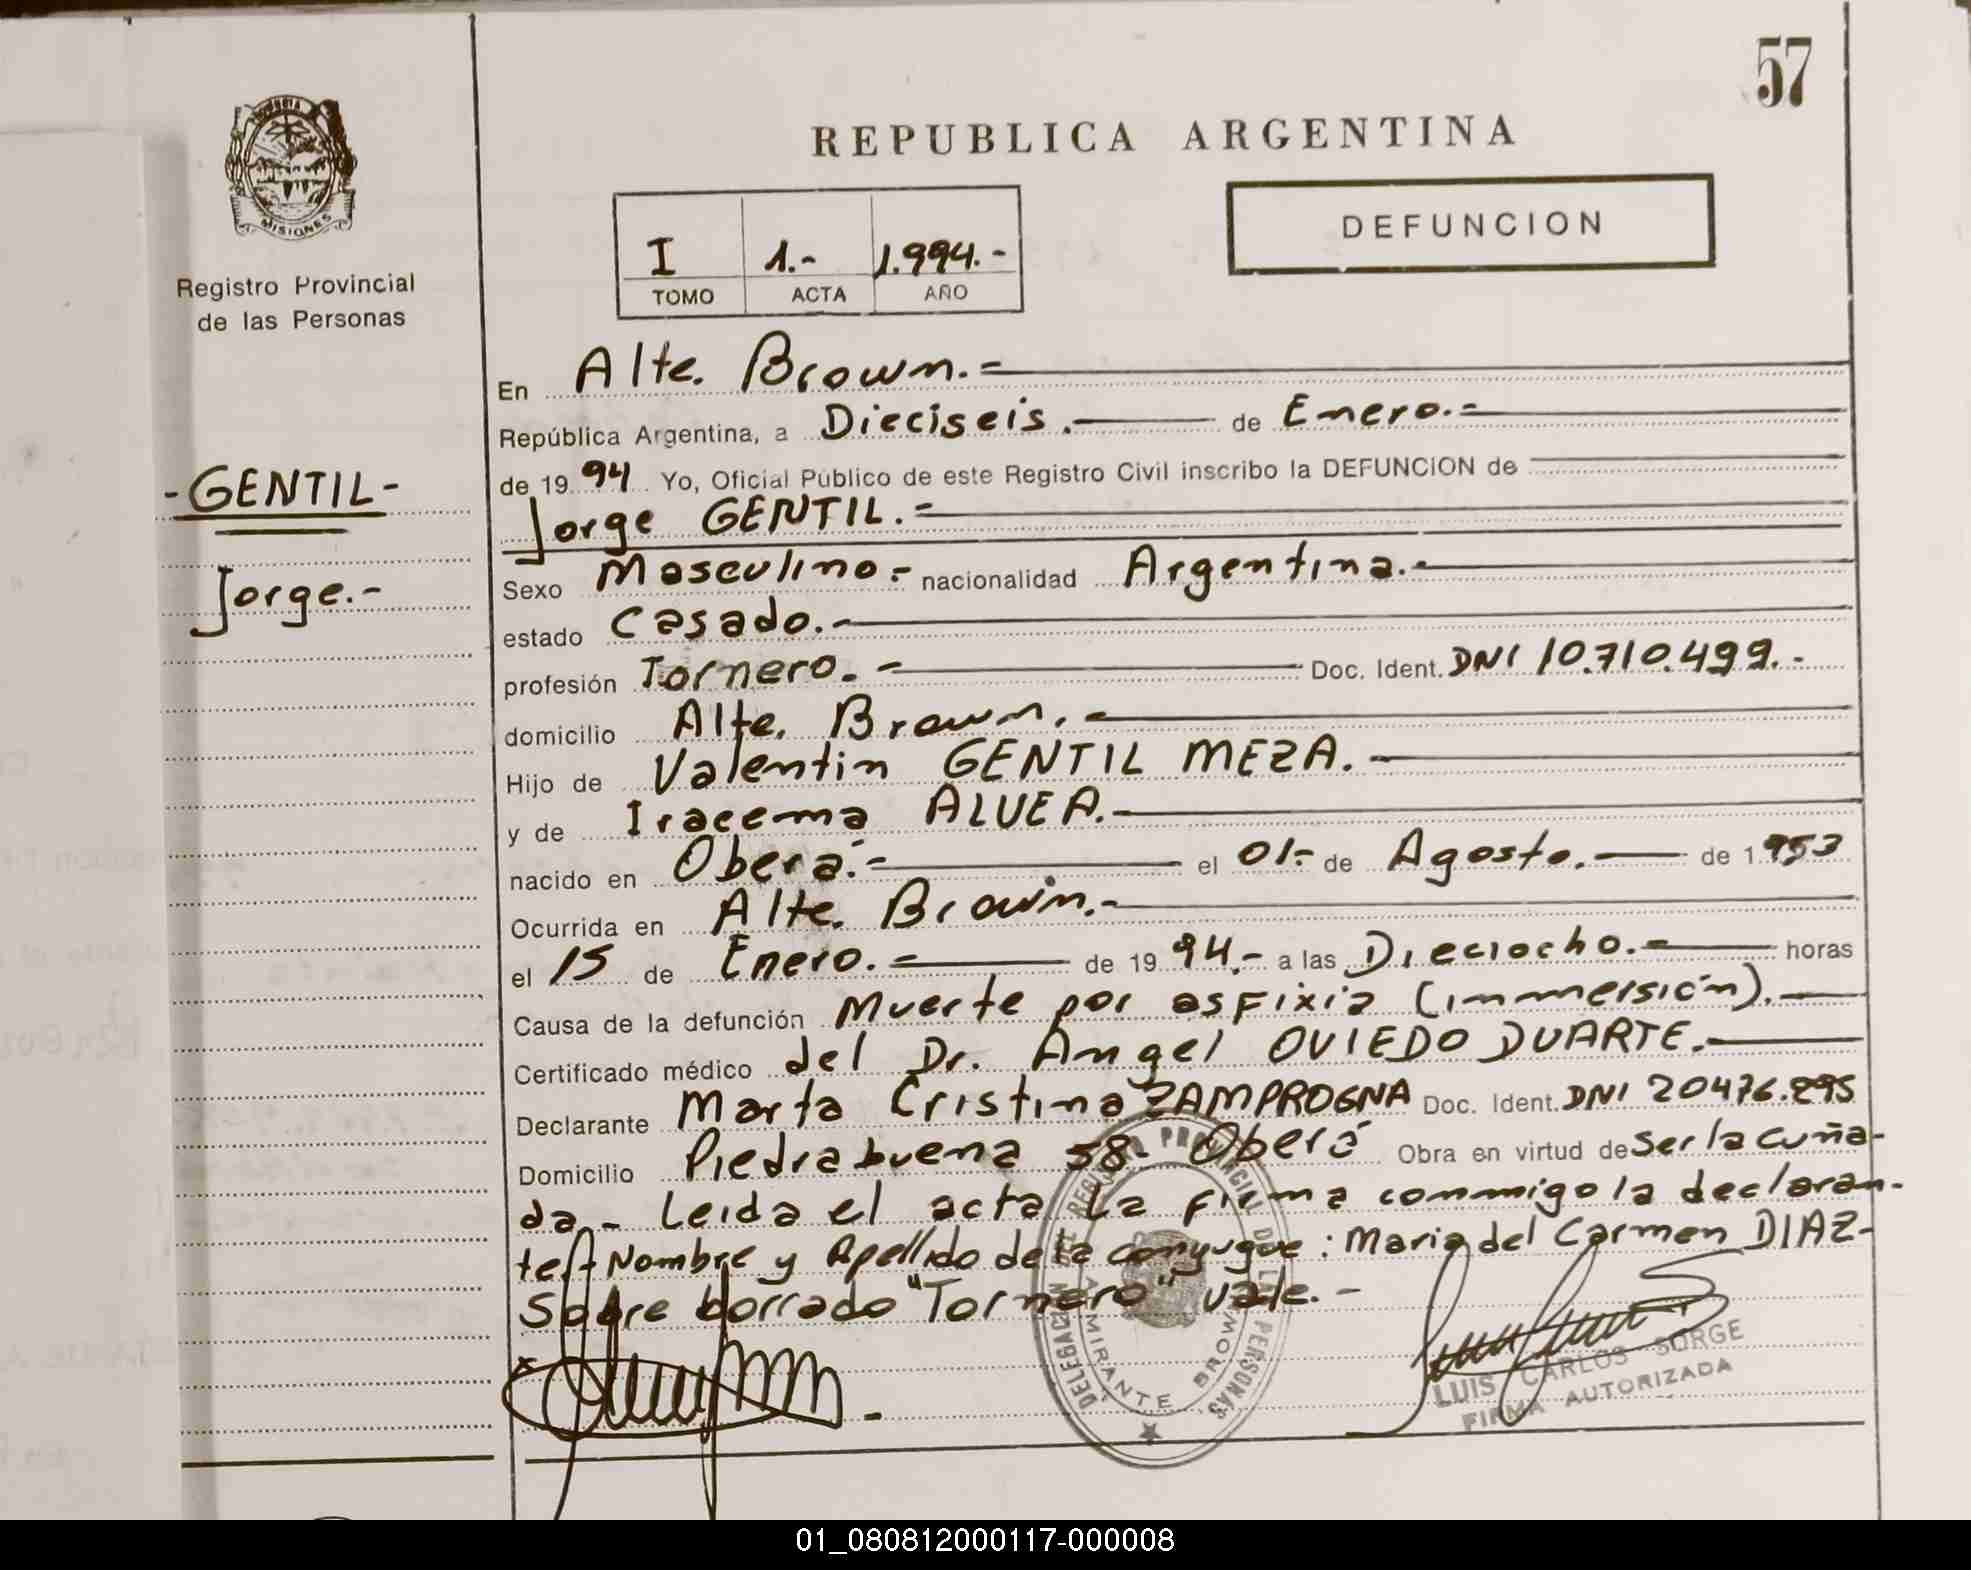 57
PROVINCIA
MISIONES
Registro Provincial
de las Personas
REPUBLICA ARGENTINA
DEFUNCION
I 1.- 1.994.-
TOMO ACTA AÑO
-GENTIL-
Jorge.-
En Alte. Brown.=
República Argentina, a Dieciseis. de Enero.=
de 19 94 Yo, Oficial Público de este Registro Civil inscribo la DEFUNCION de
Jorge GENTIL.=
Sexo Masculino.- nacionalidad Argentina.-
estado Casado.-
profesión Tornero.- Doc. Ident. DNI 10.710.499.-
domicilio Alte. Brown.-
Hijo de Valentin GENTIL MEZA.-
y de Iracema ALVEA.-
nacido en Oberá.- el 01.- de Agosto.- de 1.953
Ocurrida en Alte. Brown.-
el 15 de Enero.- de 19 94.- a las Dieciocho.- horas
Causa de la defunción Muerte por asfixia (inmersión).-
Certificado médico del Dr. Angel OVIEDO DUARTE.-
Declarante Marta Cristina ZAMPROGNA Doc. Ident. DNI 20476.295
Domicilio Piedrabuena 58- Oberá Obra en virtud de Ser la cuña-
da.- Leida el acta la firma conmigo la declaran-
te.- Nombre y Apellido de la conyugue: Maria del Carmen DIAZ-
Sobre borrado "Tornero" vale.-
DELEGACION DEL REGISTRO PROVINCIAL DE LAS PERSONAS
ALMIRANTE BROWN
LUIS CARLOS SORGE
FIRMA AUTORIZADA
01_080812000117-000008